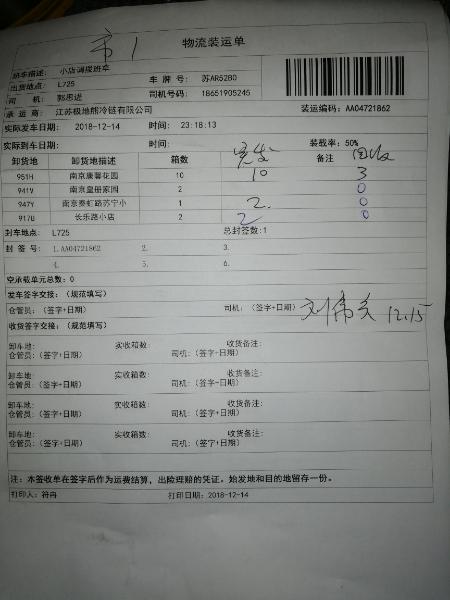 市1
物流装运单
班车描述: 小店调拨班车
出货地点: L725 车 牌 号: 苏AR5280
司 机: 郭思进 司机号码: 18651905245
承 运 商: 江苏极地熊冷链有限公司 装运编码: AA04721862
实际发车日期: 2018-12-14 时间: 23:18:13
实际到车日期: 时间: 装载率: 50%
卸货地 卸货地描述 箱数 实发 备注 回收
951H 南京康馨花园 10 10 3
941V 南京皇册家园 2 0
947Y 南京秦虹路苏宁小 1 2. 0
917U 长乐路小店 2 2 0
封车地点: L725 总封签数:1
封 签 号: 1.AA04721862 2. 3.
4. 5. 6.
空承载单元总数: 0
发车签字交接: (规范填写)
仓管员: (签字+日期) 司机: (签字+日期) 12.15
收货签字交接: (规范填写)
卸车地: 实收箱数: 收货备注:
仓管员: (签字+日期) 司机: (签字+日期)
卸车地: 实收箱数: 收货备注:
仓管员: (签字+日期) 司机: (签字+日期)
卸车地: 实收箱数: 收货备注:
仓管员: (签字+日期) 司机: (签字+日期)
卸车地: 实收箱数: 收货备注:
仓管员: (签字+日期) 司机: (签字+日期)
注: 本签收单在签字后作为运费结算, 出险理赔的凭证。始发地和目的地留存一份。
打印人: 符冉 打印日期: 2018-12-14